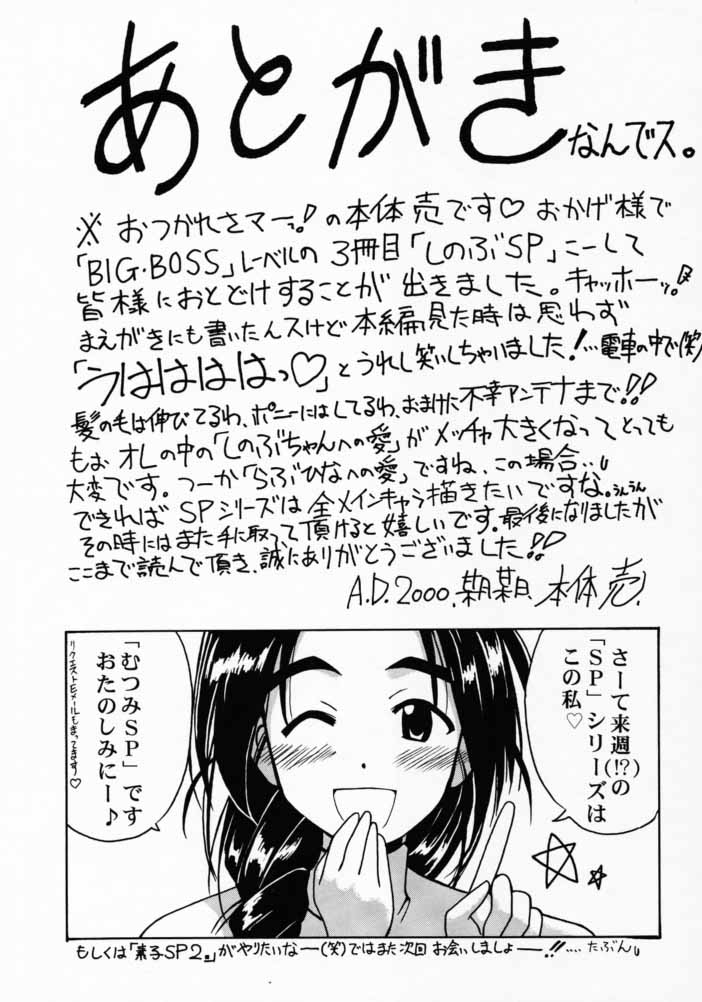 あとがき
なんでス。
※ おつかれさマーっ!の本体売です♡ おかげ様で
「BIG・BOSS」レーベルの3冊目「しのぶSP」こーして
皆様におとどけすることが出きました。キャッホーッ。
まえがきにも書いたんスけど本編見た時は思わず
「うはははははっ♡」とうれし笑いしちゃいました!…電車の中で(笑)
髪の毛は伸びてるわ、ポニーにはしてるわ、おまけに不幸アンテナまで!!
もおオレの中の「しのぶちゃんへの愛」がメッチャ大きくなってとっても
大変です。つーか「らぶひなへの愛」ですね、この場合…。
できればSPシリーズは全メインキャラ描きたいですな。うんうん
その時にはまた手に取って頂けると嬉しいです。最後になりましたが
ここまで読んで頂き、誠にありがとうございました!!
A.D.2000. 某月某日、本体 売.
さーて来週(!?)の
「SP」シリーズは
この私♡
「むつみSP」です
おたのしみにー♪
リクエストEメールもまってます♡
もしくは「素子SP2。」がやりたいなー(笑)ではまた次回 お会いしましょー!!…. たぶん。